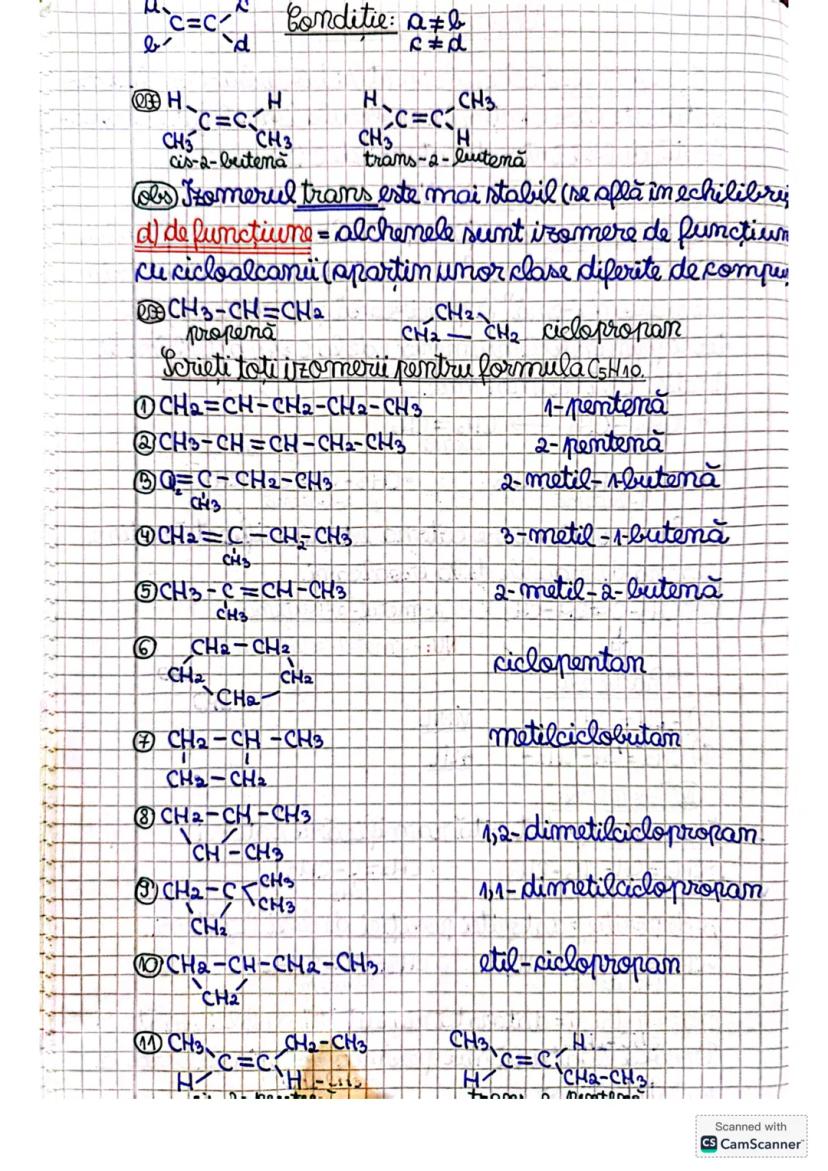 C=C
b d
Condiție: a≠b
c≠d
ex H H H CH3
C=C C=C
CH3 CH3 CH3 H
cis-2-butenă trans-2-butenă
obs Izomerul trans este mai stabil (se află în
d) de funcțiune = alchenele sunt izomere de
cu cicloalcanii (aparțin unor clase diferite de
ex CH3-CH=CH2 CH2
propenă CH2 — CH2 ciclopropan
Scrieți toți izomerii pentru formula C5H10.
① CH2=CH-CH2-CH2-CH3 1-pentenă
② CH3-CH=CH-CH2-CH3 2-pentenă
③ =C-CH2-CH3 2-metil-1-butenă
CH3
④ CH2=C-CH2-CH3 3-metil-1-butenă
CH3
⑤ CH3-C=CH-CH3 2-metil-2-butenă
CH3
⑥ CH2-CH2
CH2 CH2 ciclopentan
CH2
⑦ CH2-CH-CH3 metilciclobutan
CH2-CH2
⑧ CH2-CH-CH3 1,2-dimetilciclopropan
CH-CH3
⑨ CH2-C CH3 1,1-dimetilciclopropan
CH3
CH2
⑩ CH2-CH-CH2-CH3 etil-ciclopropan
CH2
⑪ CH3 CH2-CH3 CH3 H
C=C C=C
H H H CH2-CH3
Scanned with
CS CamScanner